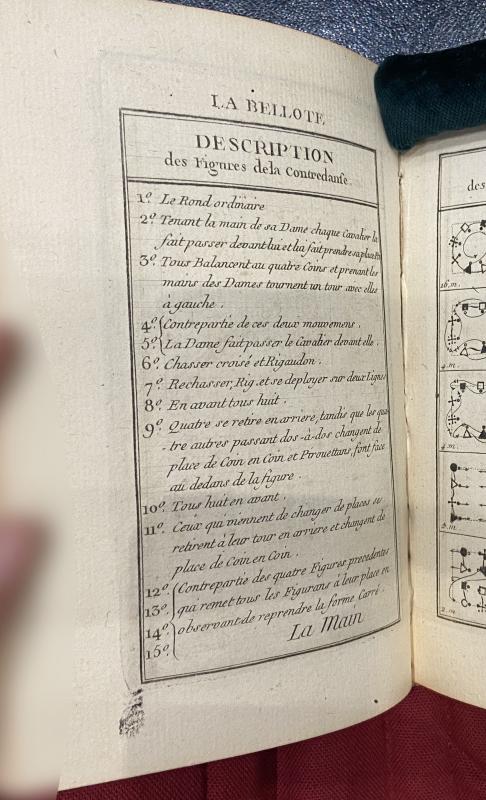 LA BELLOTE
DESCRIPTION
des Figures de la Contredanse.
1.º Le Rond ordinaire
2.º Tenant la main de sa Dame chaque Cavalier la
fait passer devant lui et lui fait prendre sa place
3.º Tous Balancent au quatre Coins et prenant les
mains des Dames tournent un tour avec elles
à gauche.
4.º Contrepartie de ces deux mouvemens.
5.º La Dame fait passer le Cavalier devant elle.
6.º Chasser croisé et Rigaudon.
7.º Rechasser, Rig. et se deployer sur deux Lignes
8.º En avant tous huit.
9.º Quatre se retire en arriere, tandis que les qua
-tre autres passant dos-à-dos changent de
place de Coin en Coin et Pirouettans, font face
au dedans de la figure.
10.º Tous huit en avant.
11.º Ceux qui viennent de changer de places se
retirent à leur tour en arriere et changent de
place de Coin en Coin.
12.º Contrepartie des quatre Figures precedentes
13.º qui remet tous les Figurans à leur place en
14.º observant de reprendre la forme Carré.
15.º
La Main
des
16.m.
4.m.
4.m.
2.m